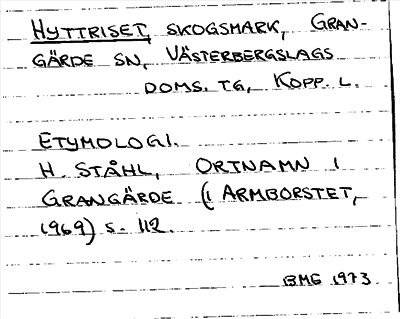 HYTTRISET, SKOGSMARK, GRAN-
GÄRDE SN, VÄSTERBERGSLAGS
DOMS. TG, KOPP. L.
ETYMOLOGI.
H. STÅHL, ORTNAMN I
GRANGÄRDE (I ARMBORSTET,
1969) S. 112.
BMG 1973.